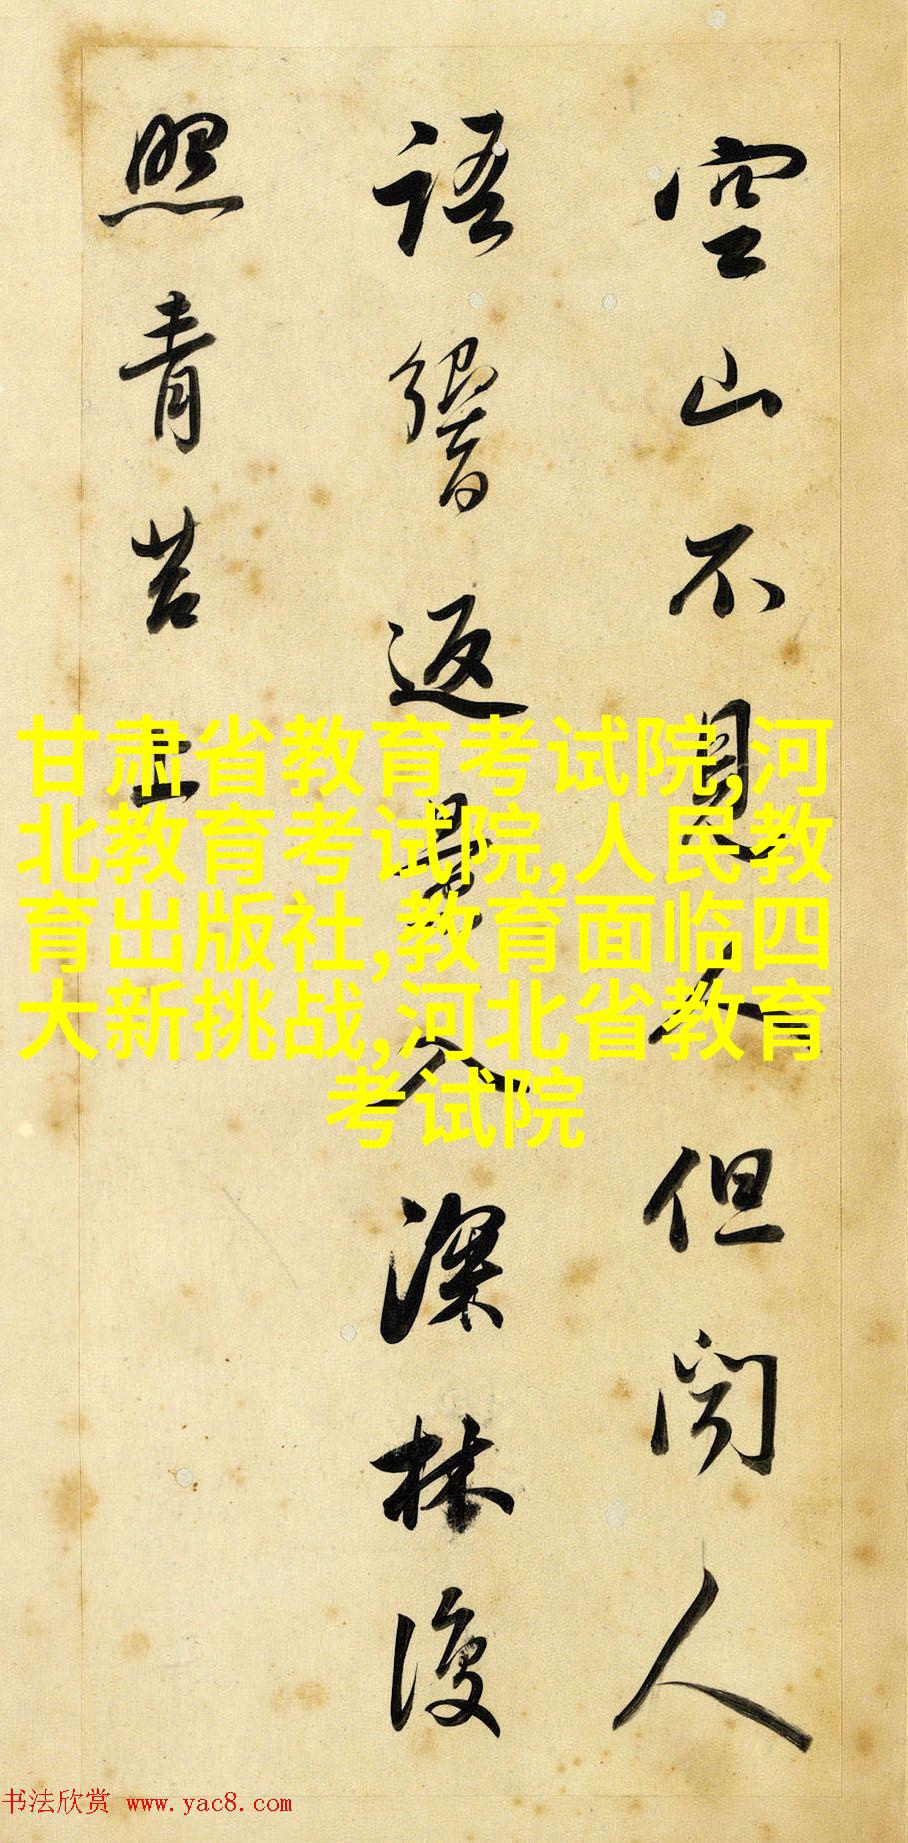 空山不見人但闻人
语響返景入深林復
照青苔上
甘肃省教育考试院,河
北教育考试院,人民教
育出版社,教育面临四
大新挑战,河北省教育
考试院
书法欣赏 www.yac8.com